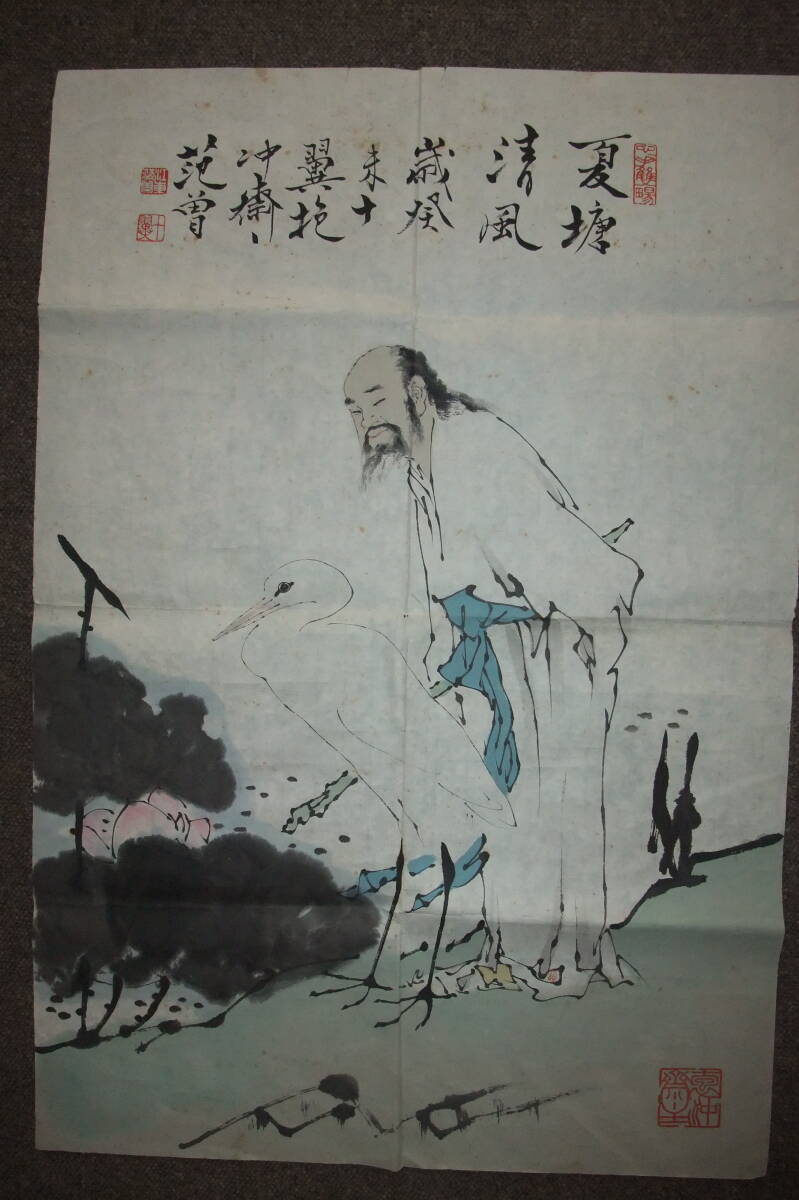 夏塘
清風
歲癸
未十
翼抱
冲齋丶
范曾